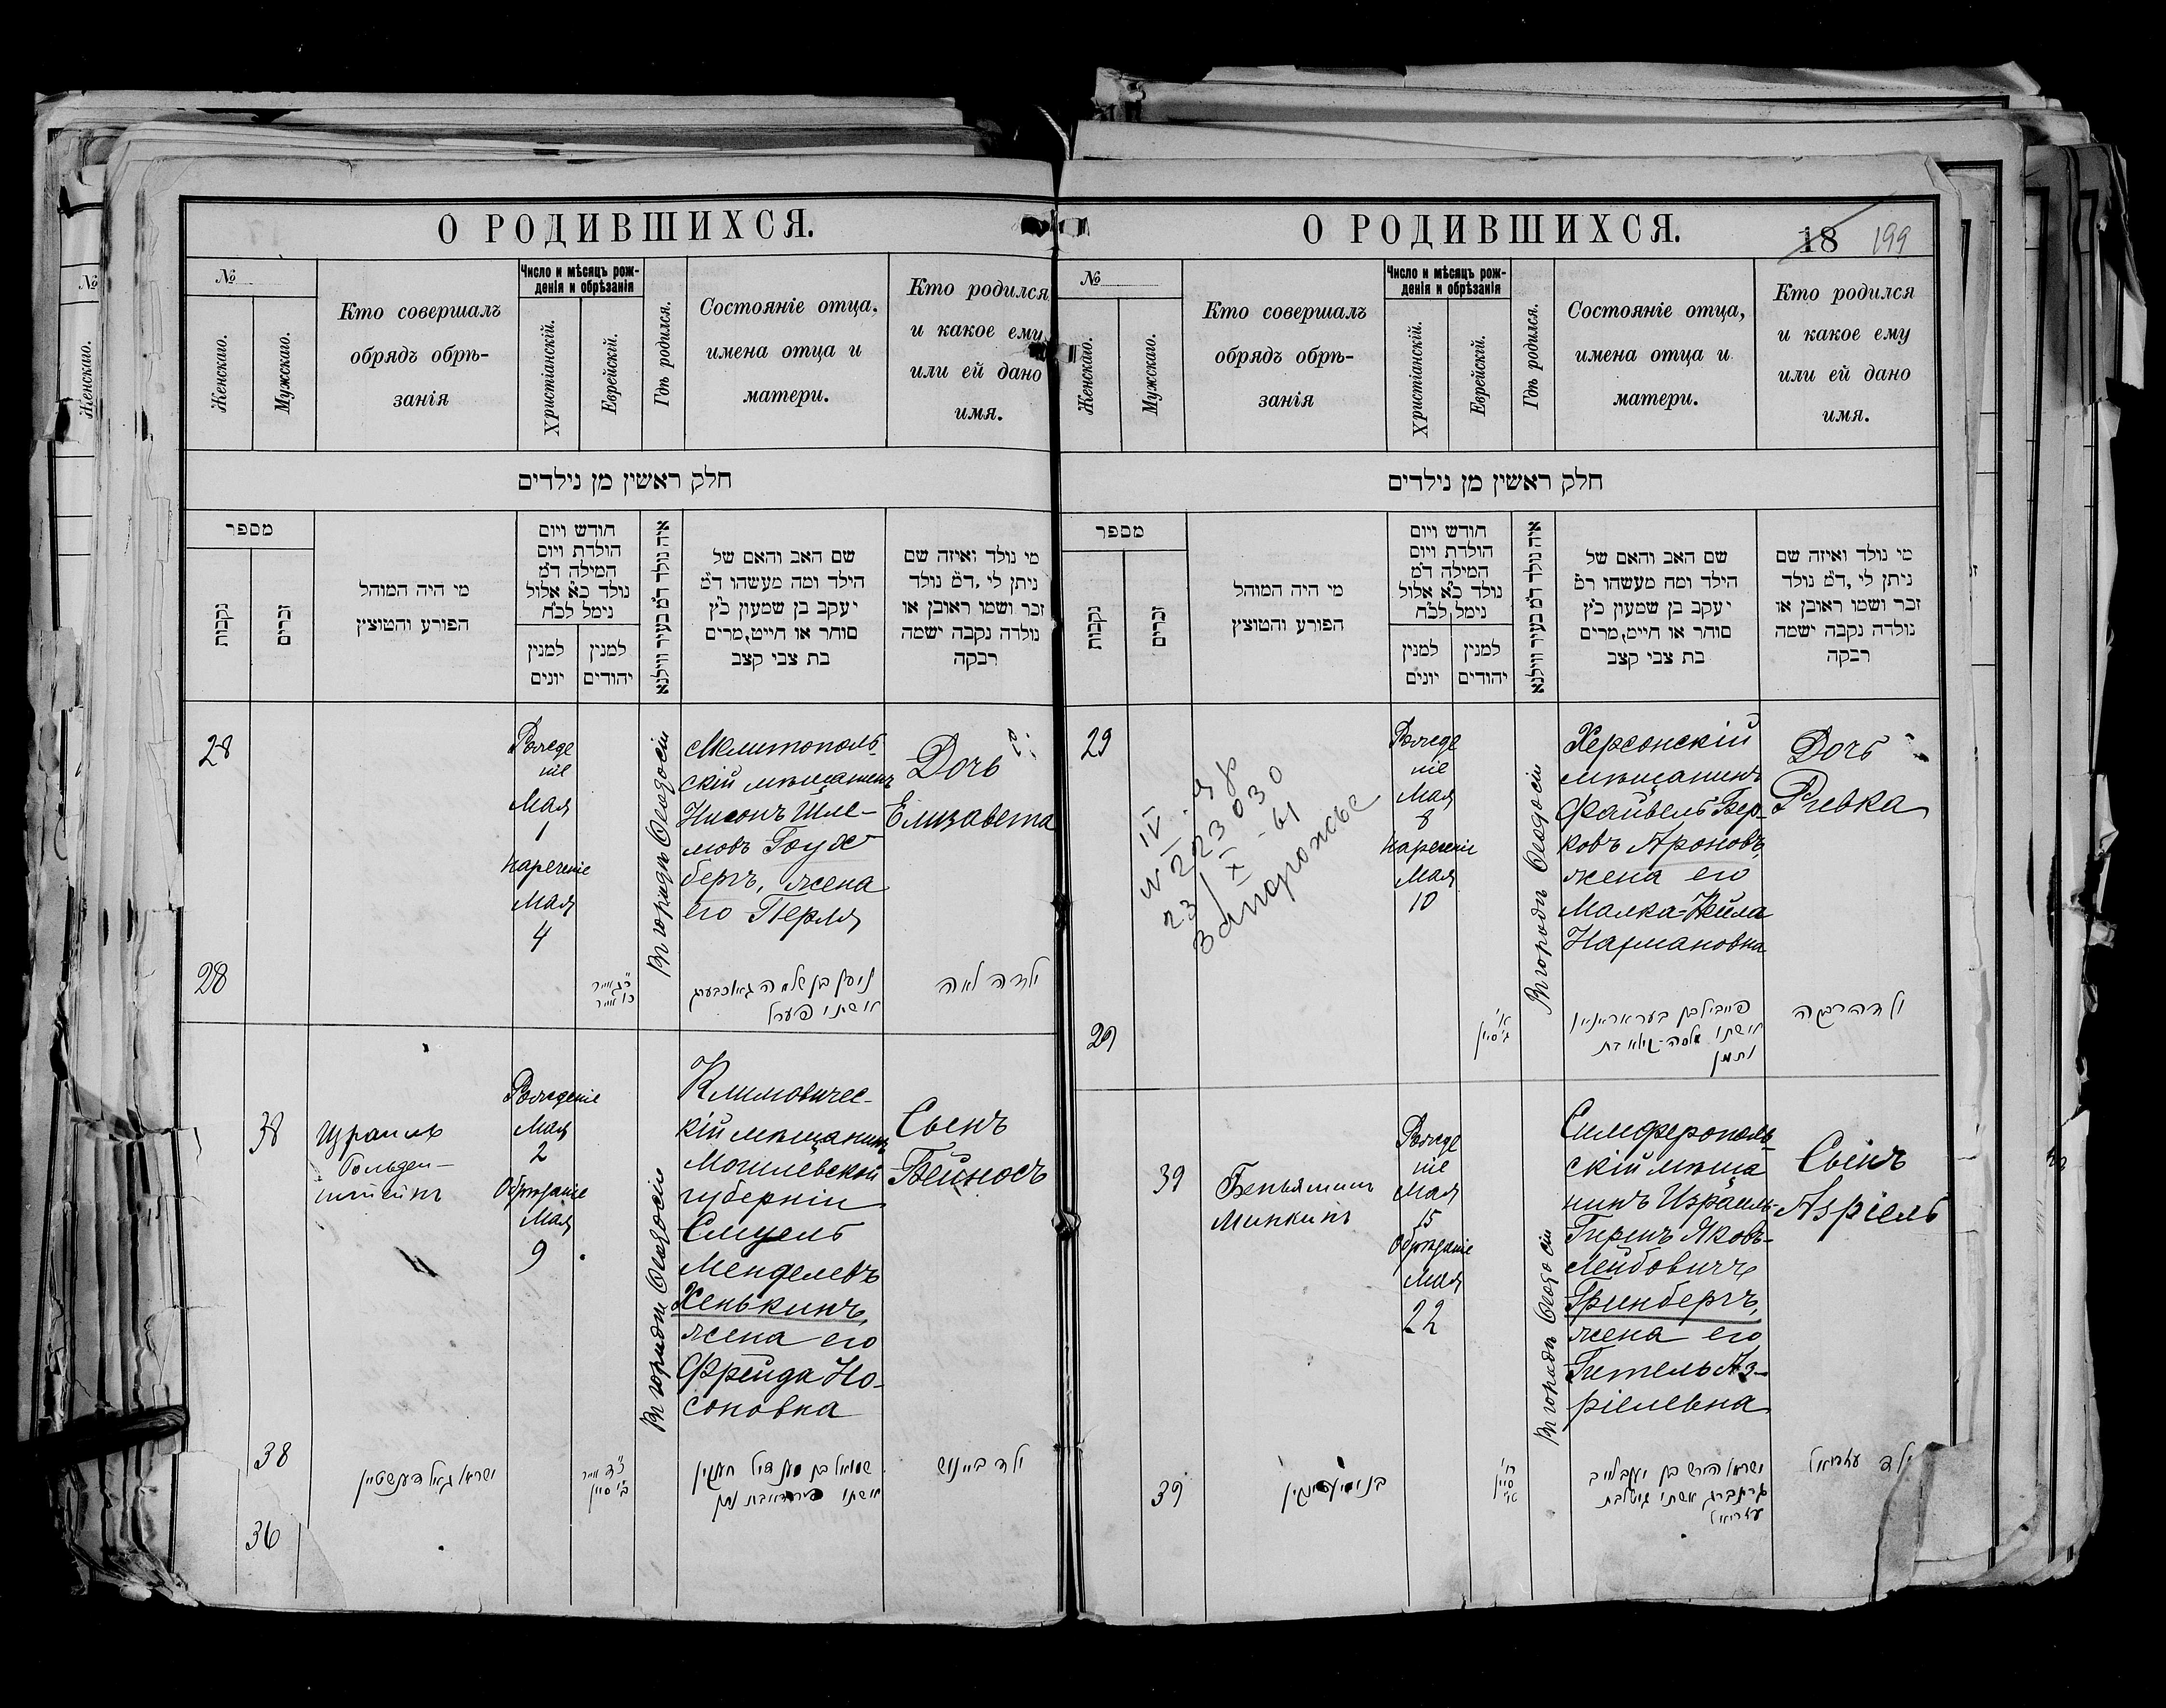 О РОДИВШИХСЯ.
№
Женскаго.
Мужскаго.
Кто совершалъ
обрядъ обрѣ-
занія
Число и мѣсяцъ рож-
денія и обрѣзанія
Христіанскій.
Еврейскій.
Гдѣ родился.
Состояніе отца,
имена отца и
матери.
Кто родился
и какое ему
или ей дано
имя.
חלק ראשין מן נילדים
מספר
נקבות
זכרים
מי היה המוהל
הפורע והמוצץ
חודש ויום
הולדת ויום
המילה ד״מ
נולד כ״א אלול
נימל לכ״ח
למנין
יונים
למנין
יהודים
איה נולד ד״מ בעיר ווילנא
שם האב והאם של
הילד ומה מעשהו ד״מ
יעקב בן שמעון כ״ץ
סוחר או חייט,מרים
בת צבי קצב
מי נולד ואיזה שם
ניתן לו ,ד״מ נולד
זכר ושמו ראובן או
נולדה נקבה ישמה
רבקה
28
Рожде
ніе
Мая
1
нареченіе
Мая
4
Въ городѣ Ѳеодосіи
Мелитополь-
скій мѣщанинъ
Нисонъ Шле-
мовъ Гоух-
бергъ, жена
его Перля
Дочь
Елизавета
28
ילדה לאה
38
Израиль
Гольден-
штейнъ
Рожденіе
Мая
2
Обрѣзаніе
Мая
9
Въ городѣ Ѳеодосіи
Климовичес-
кій мѣщанинъ
Могилевской
губерніи
Смуель
Менделевъ
Хенькинъ,
жена его
Фрейда Но-
соновна
Сынъ
Бейносъ
38
ילד ביינוש
36
О РОДИВШИХСЯ.
18 199
№
Женскаго.
Мужскаго.
Кто совершалъ
обрядъ обрѣ-
занія
Число и мѣсяцъ рож-
денія и обрѣзанія
Христіанскій.
Еврейскій.
Гдѣ родился.
Состояніе отца,
имена отца и
матери.
Кто родился
и какое ему
или ей дано
имя.
חלק ראשין מן נילדים
מספר
נקבות
זכרים
מי היה המוהל
הפורע והמוצץ
חודש ויום
הולדת ויום
המילה ד״מ
נולד כ״א אלול
נימל לכ״ח
למנין
יונים
למנין
יהודים
איה נולד ד״מ בעיר ווילנא
שם האב והאם של
הילד ומה מעשהו ד״מ
יעקב בן שמעון כ״ץ
סוחר או חייט,מרים
בת צבי קצב
מי נולד ואיזה שם
ניתן לו ,ד״מ נולד
זכר ושמו ראובן או
נולדה נקבה ישמה
רבקה
29
№ 223030
23/X-61
Запорожье
Рожде
ніе
Мая
8
нареченіе
Мая
10
Въ городѣ Ѳеодосіи
Херсонскій
мѣщанинъ
Файвель Бер-
ковъ Ароновъ,
жена его
Малка-Кейла
Нахмановна
Дочь
Ривка
29
ילדה רבקה
39
Беньяминъ
Минкинъ
Рожде
ніе
Мая
15
Обрѣзаніе
Мая
22
Въ городѣ Ѳеодосіи
Симферополь-
скій мѣща
нинъ Израиль-
Гиршъ Яковъ-
Лейбовичъ
Гринбергъ,
жена его
Гитель Аз-
ріелевна
Сынъ
Азріель
39
ילד עזריאל